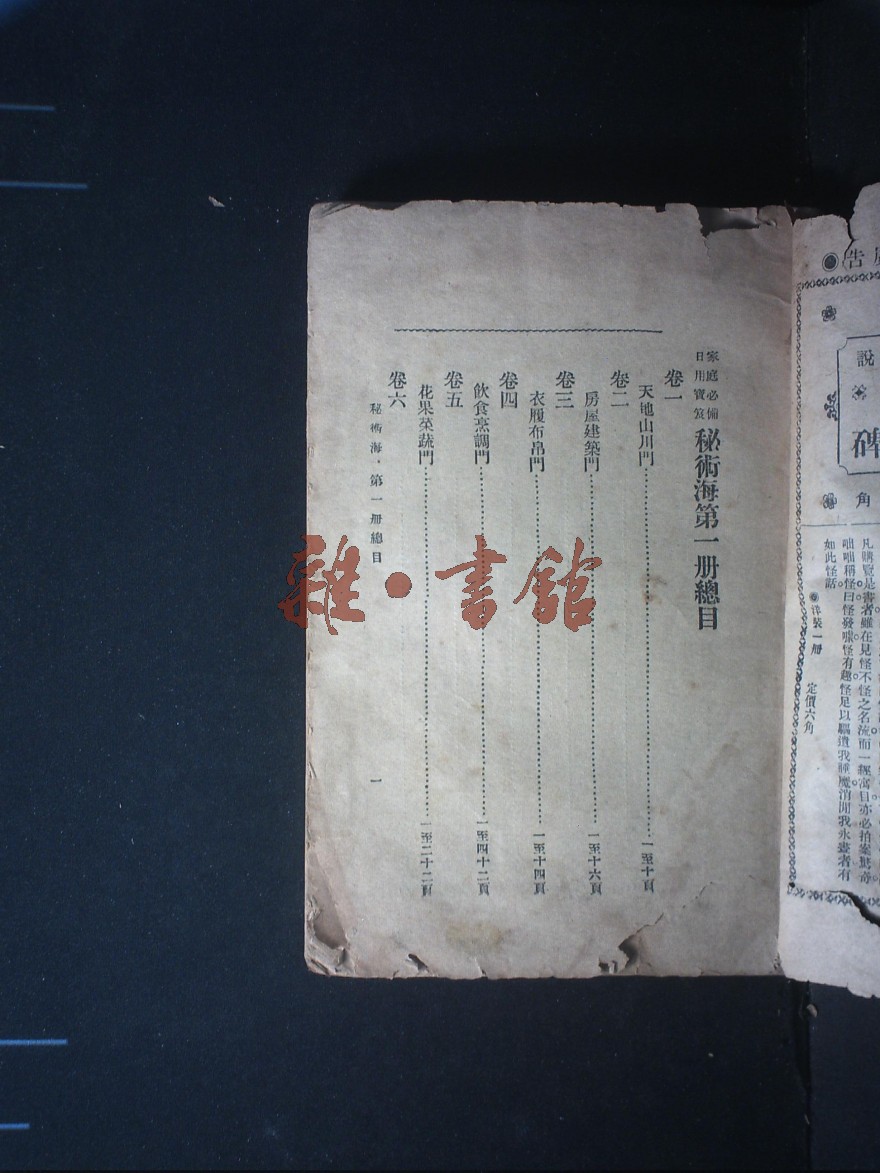 家庭必備
日用寶笈
秘術海第一册總目
卷一
天地山川門……一至十頁
卷二
房屋建築門……一至十六頁
卷三
衣履布帛門……一至十四頁
卷四
飲食烹調門……一至四十二頁
卷五
花果菜蔬門……一至二十二頁
卷六
秘術海·第一册總目 一
雜·書館
告
說
碑
角
凡購覽是書者雖在見怪不怪之名流而一經寓目亦必拍案驚奇
咄咄稱怪曰怪發噱怪有趣怪足以驅遣我睡魔消閒我永晝者有
如此怪話
洋裝一册 定價六角